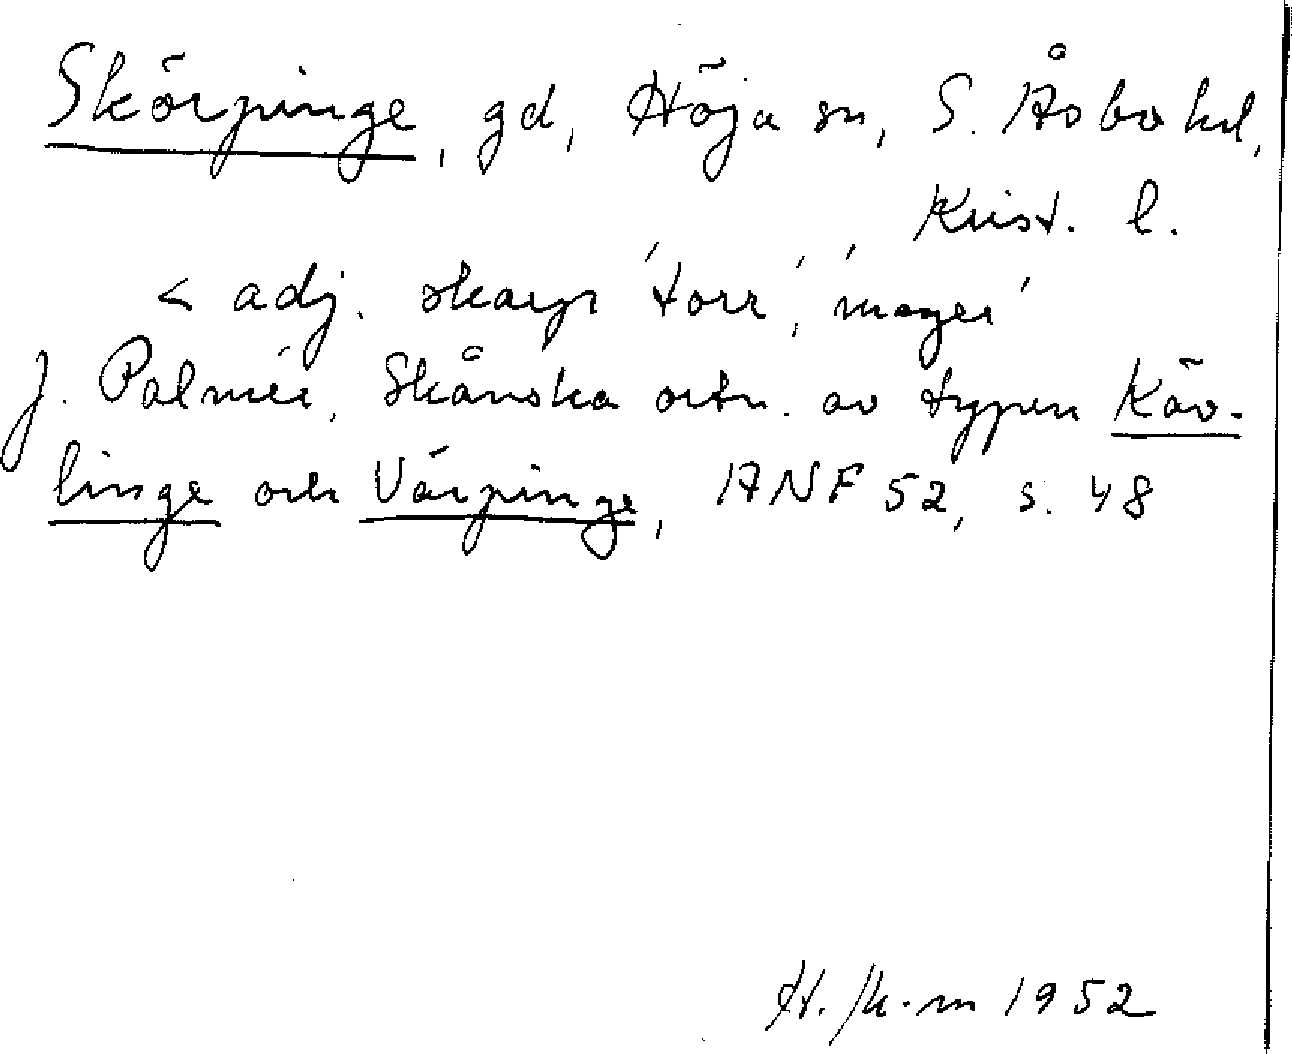 Skörpinge, gd, Höja sn, S. Åsbo hd,
Krist. l.
< adj. skarp 'torr', 'mager'
J. Palmér, Skånska ortn. av typen Käv-
linge och Värpinge, ANF 52, s. 48
1952